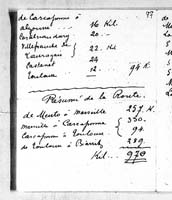 de Carcassonne à
alzonne ... 16 Kil.
Castelnaudary 20 "
Villefranche de
Lauragais } 22. Kil
Castanet 24
Toulouse 12 ... 94 K.
Résumé de la Route.
de Menton à Marseille 257. K.
Marseille à Carcassonne 330.
Carcassonne à Toulouse 94.
de Toulouse à Biarritz 289
Kil... 970